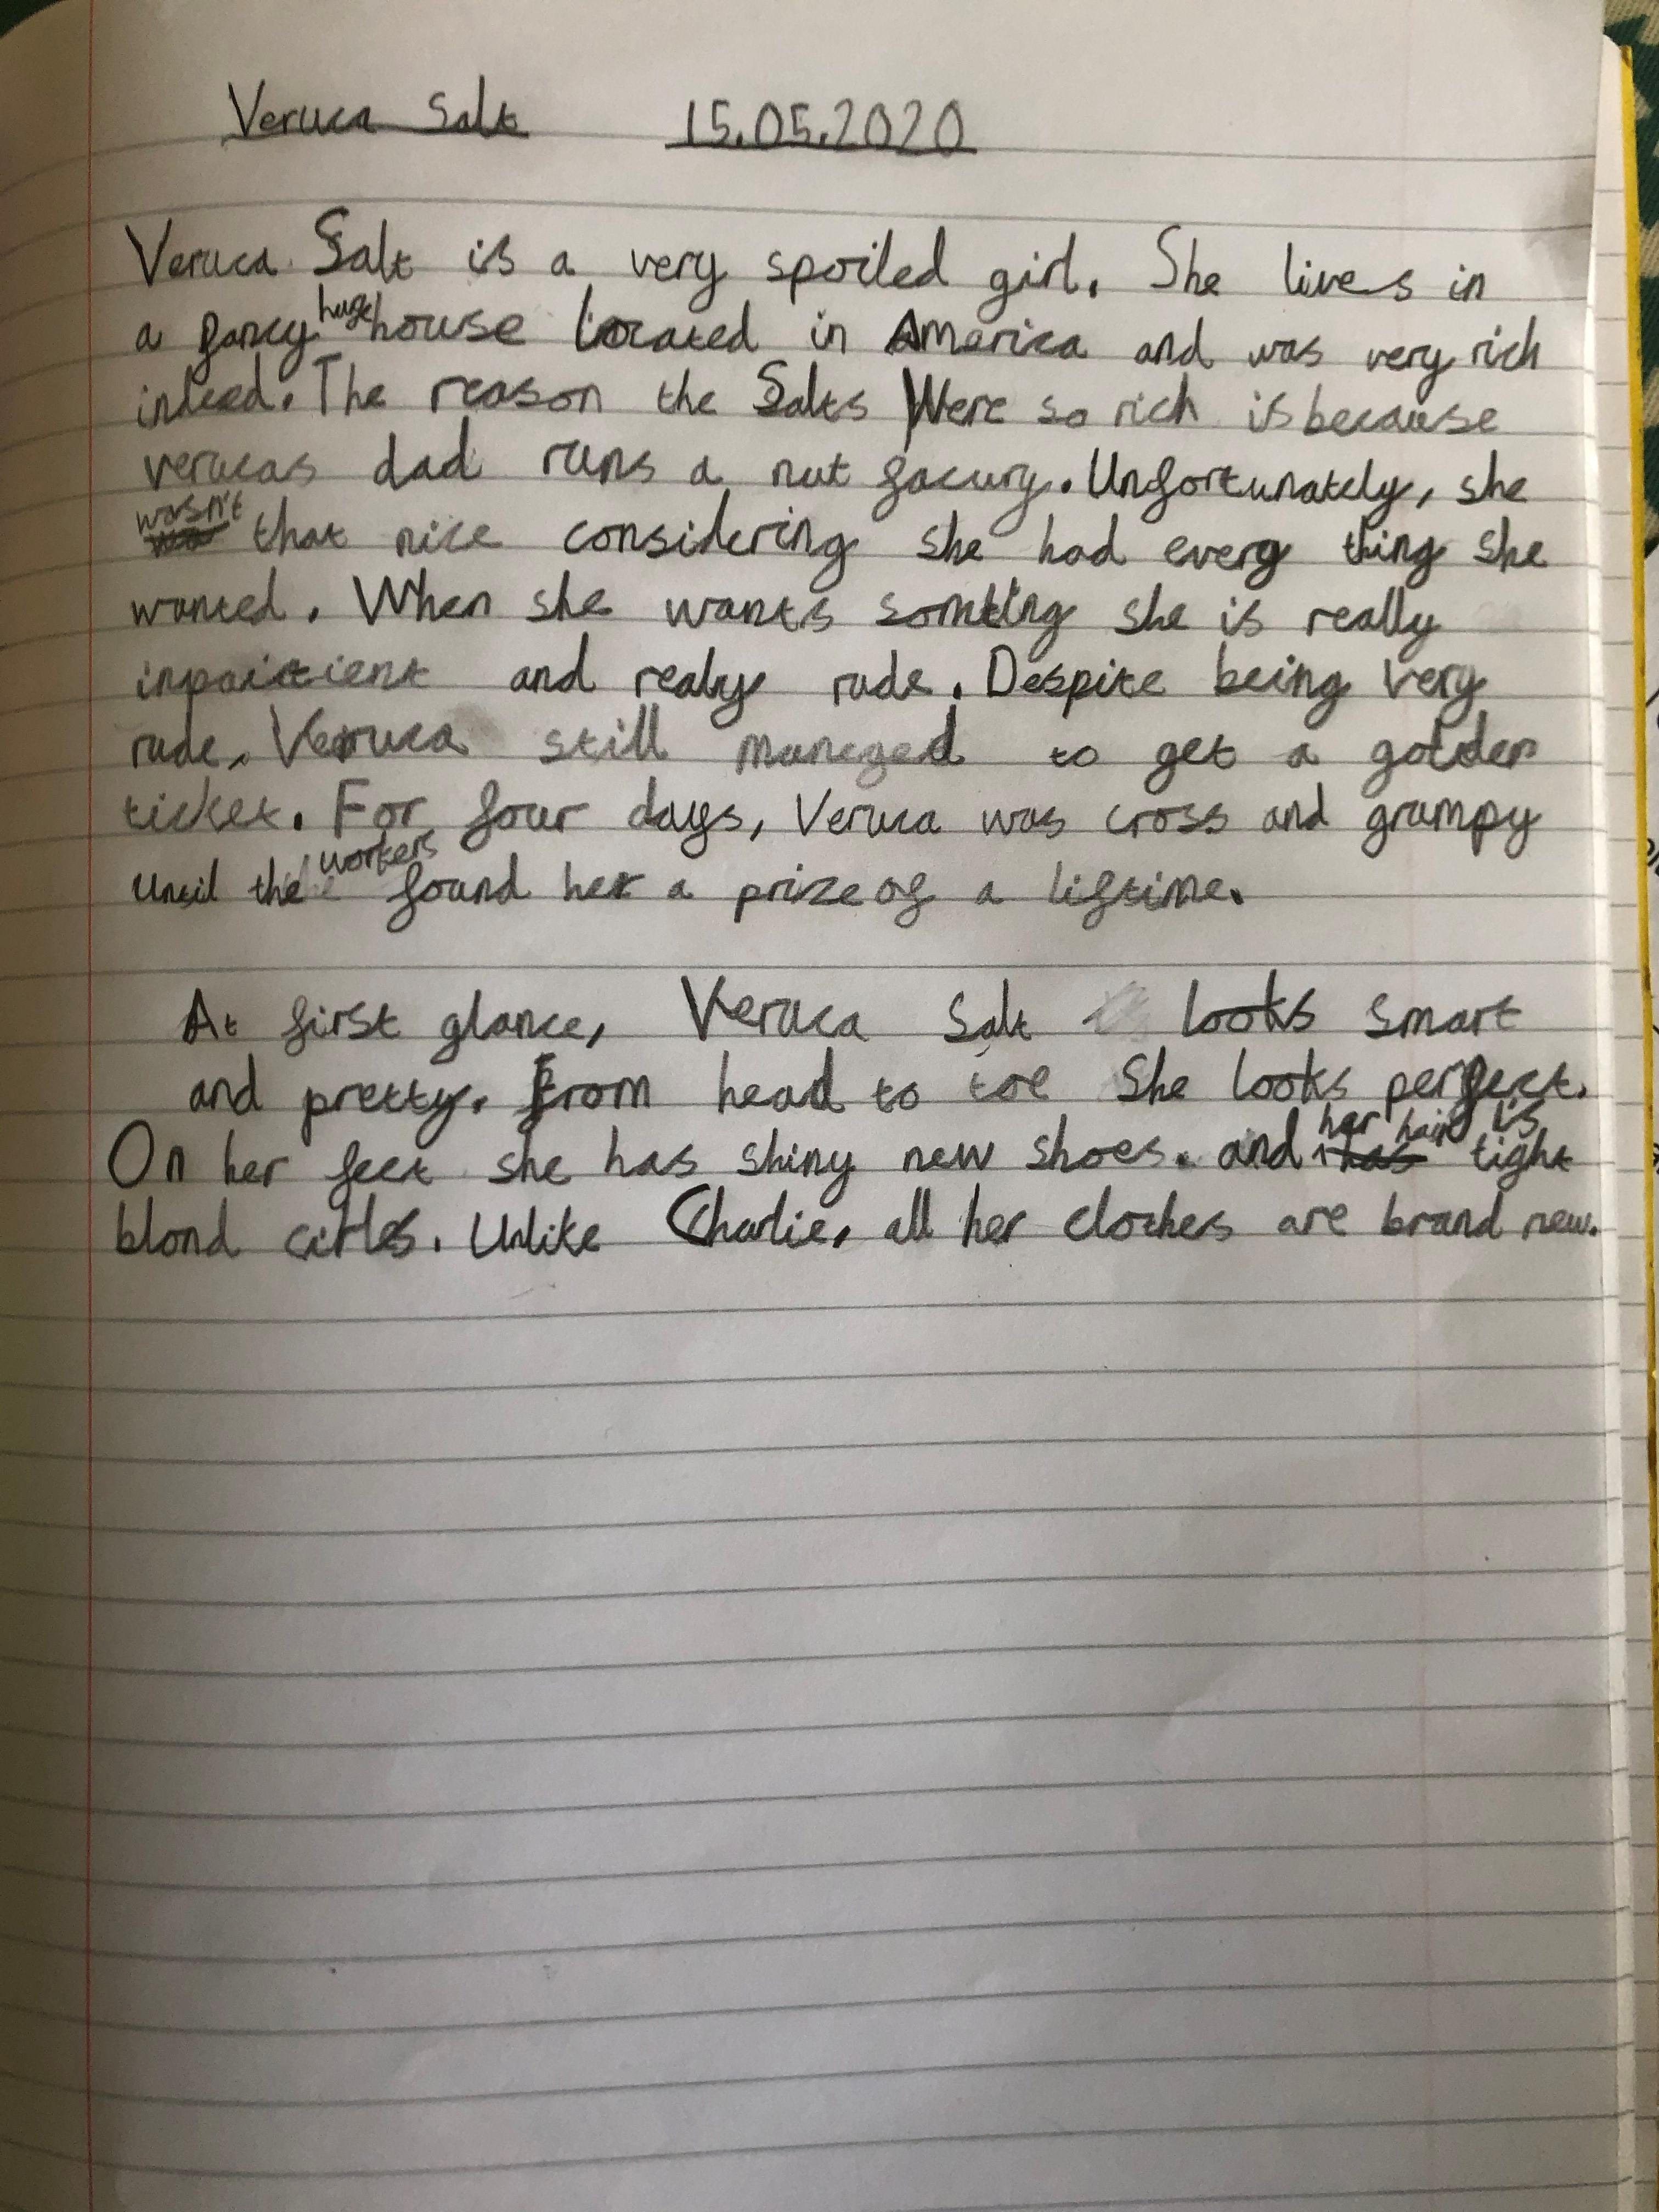 Veruca Salt 15.05.2020
Veruca Salt is a very spoiled girl. She lives in
a fancy huge house located in America and was very rich
indeed. The reason the Salts Were so rich is because
verucas dad runs a nut facury. Unfortunately, she
wasn't that nice considering she had every thing she
wanted. When she wants somting she is really
inpaitient and realy rude. Despite being very
rude, Veruca still maneged to get a golden
ticket. For four days, Veruca was cross and grumpy
until the workers found her a prize of a liftime.
At first glance, Veruca Salt looks smart
and pretty. From head to toe She looks perfect.
On her feet she has shiny new shoes. and her hair is tight
blond cirles. Unlike Charlie, all her clothes are brand new.